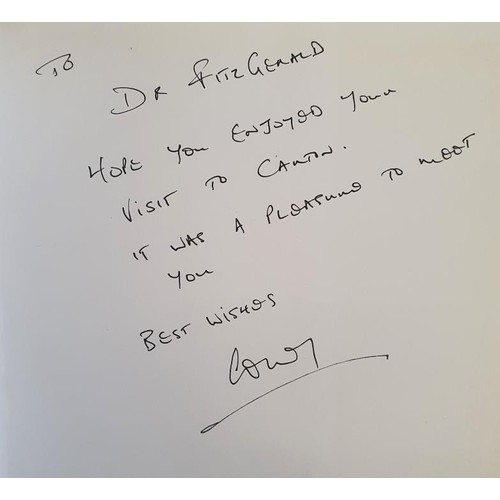 To
DR FITZGERALD
HOPE YOU ENJOYED YOUR
VISIT TO CANTON.
IT WAS A PLEASURE TO MEET
YOU
BEST WISHES